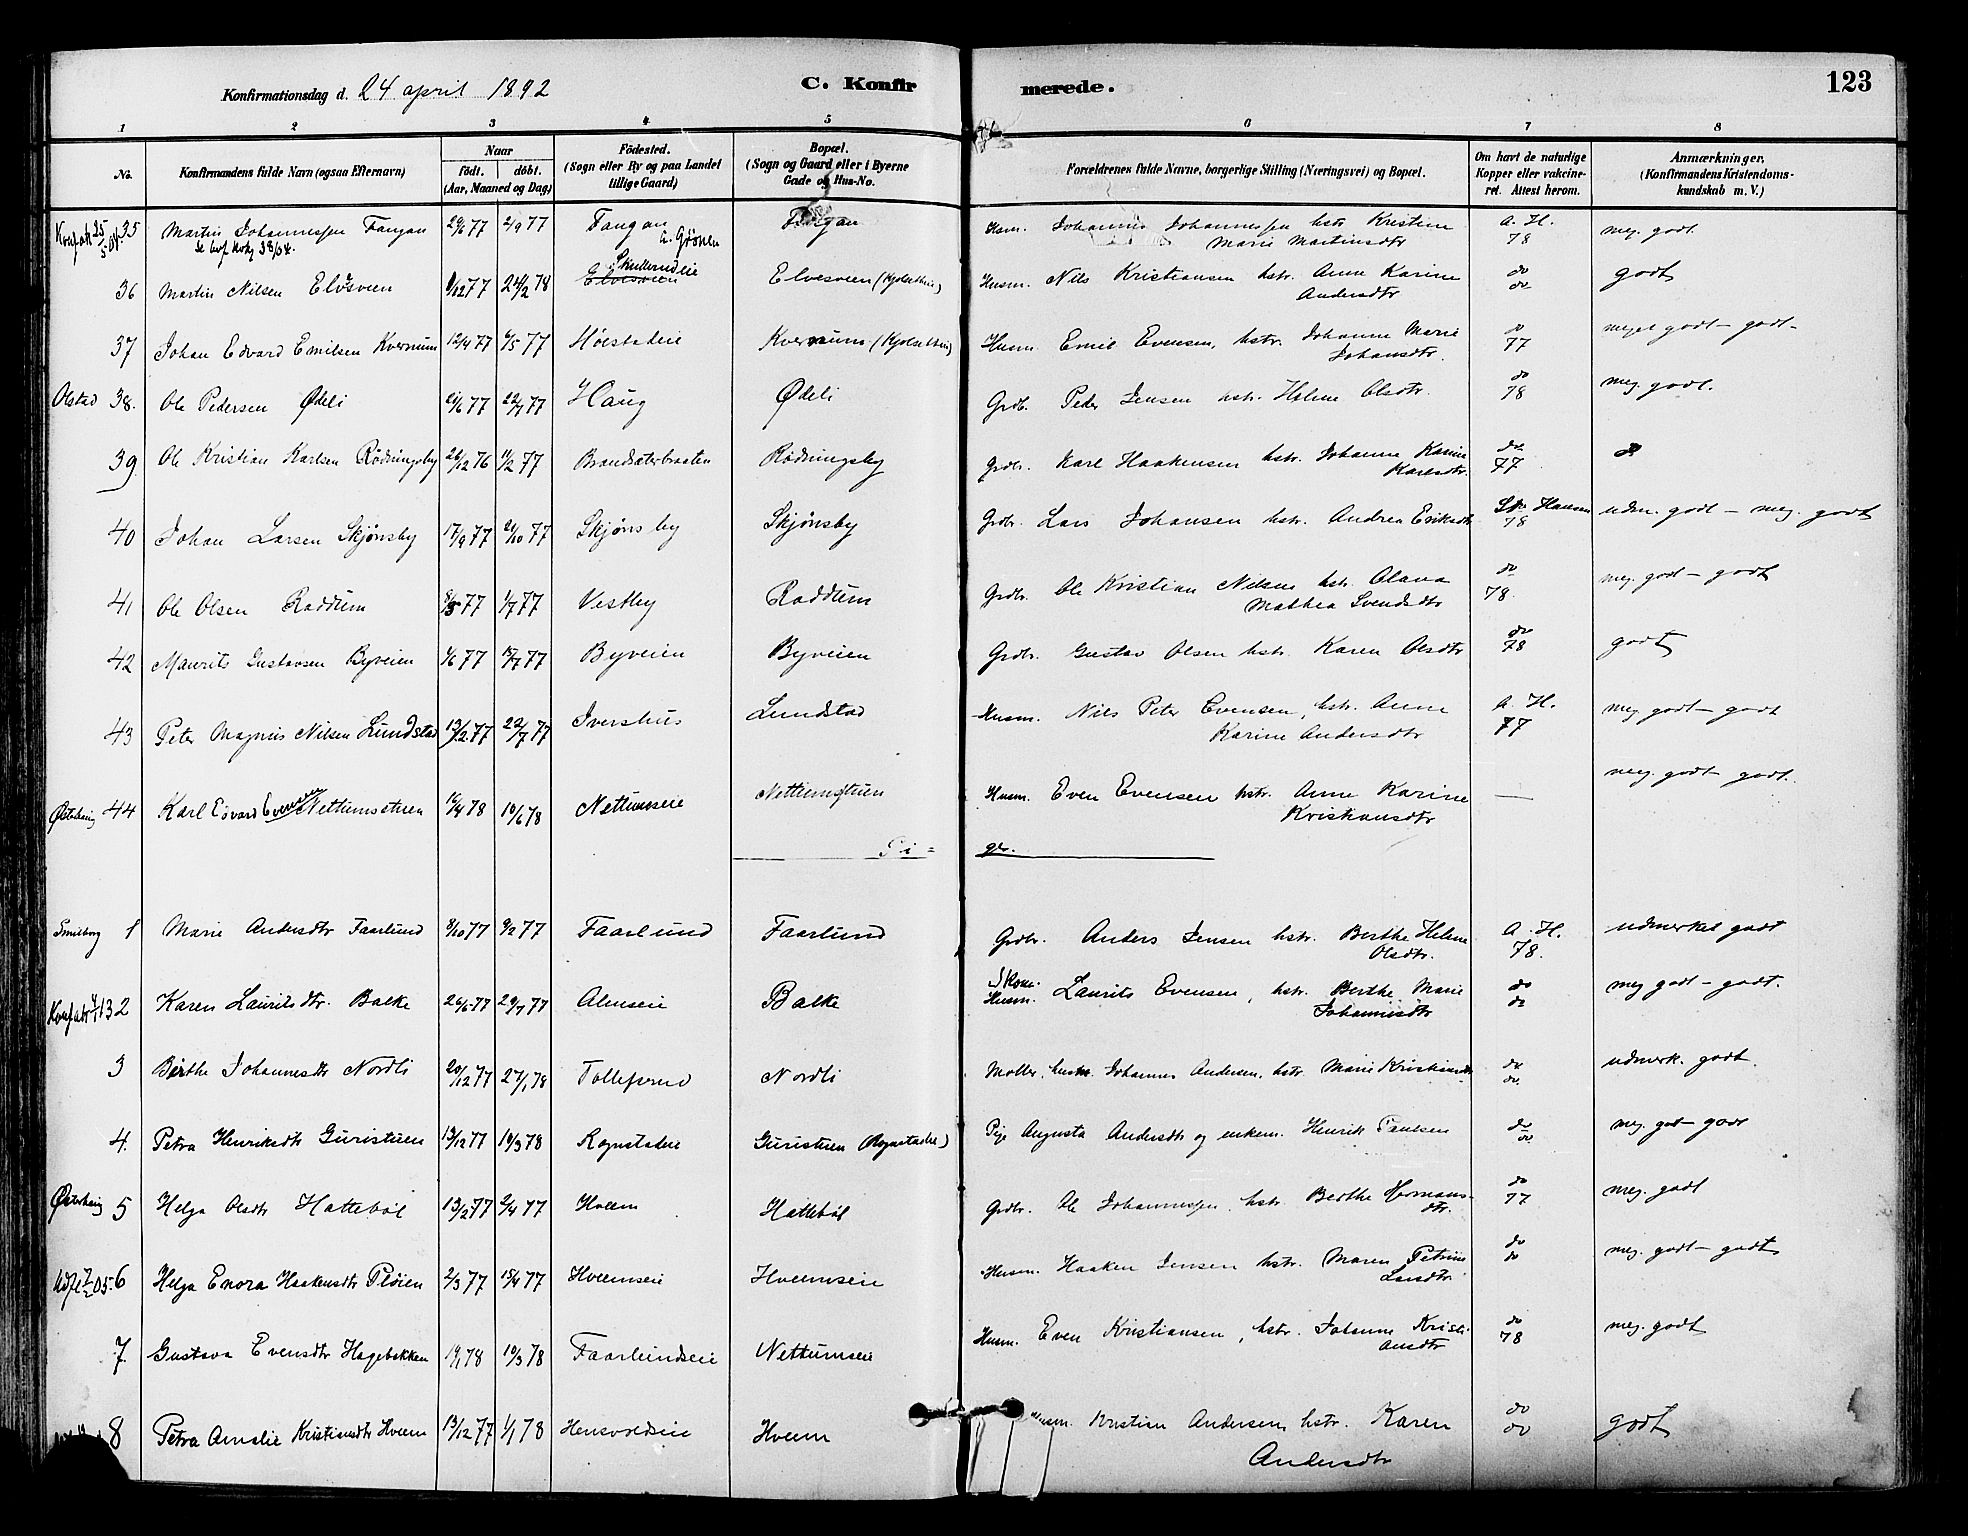 Konfirmationsdag d. 24 april 1892 C. Konfir merede. 123
1 2 3 4 5 6 7 8
No. Konfirmandens fulde Navn (ogsaa Efternavn) Naar födt. döbt. (Aar, Maaned og Dag) Födested. (Sogn eller By og paa Landet tillige Gaard) Bopæl. (Sogn og Gaard eller i Byerne Gade og Hus-No. Forældrenes fulde Navne, borgerlige Stilling (Næringsvei) og Bopæl. Om havt de naturlige Kopper eller vakcineret. Attest herom. Anmærkninger. (Konfirmandens Kristendomskundskab m. V.)
35 Martin Johannessen Fangan 2/9 77 Fangan Fangan Husm. Johannes Johannessen hstr Kristine A. H. meg. godt
Marie Martinsdtr 78
36 Martin Nilsen Elvsveen 77 78 Skullerudeie Elvesveen Husm. Nils Kristiansen hstr. Anne Karine do godt
Andersdtr do
37 Johan Edvard Emilsen Kvernum 12/4 77 6/5 77 Høistadeie Kvernum Husm. Emil Evensen, hstr. Johanne Marie do meget godt – godt
Johansdtr. 77
Olstad 38. Ole Pedersen Ødeli 77 22/7 77 Haug Ødeli Grdb. Peder Jensen hstr. Helene Olsdtr. do 78 meg. godt.
39 Ole Kristian Karlsen Rødningsby 26/12 76 11/2 77 Brandsæterbraaten Rødningsby Grdbr. Karl Haakensen hstr. Johanne Karine do
Karlsdtr. 77
40 Johan Larsen Skjønsby 17/9 77 21/10 77 Skjønsby Skjønsby Grdbr. Lars Johansen hstr. Andrea Eriksdtr Hansen 78 udm. godt – meg. godt
41 Ole Olsen Raddum 77 1/7 77 Vestby Raddum Grdbr. Ole Kristian Nilsen hstr. Olava do meg. godt – godt
Mathea Svendsdtr 78.
42 Maurits Gustavsen Byveien 1/6 77 15/7 77 Byveien Byveien Grdbr. Gustav Olsen hstr. Karen Olsdtr do 78 godt
43 Peter Magnus Nilsen Lundstad 77 22/7 77 Ivershus Lundstad Husm. Nils Peter Evensen, hstr. Anne A. H. meg godt – godt
Karine Andersdtr 77
44 Karl Edvard Evensen Nettumsstuen 78 10/6 78 Nettumseie Nettumstuen Husm. Even Evensen hstr. Anne Karine — meg. godt – godt.
Kristiansdtr
Pi= ger.
Smeborg 1 Marie Andersdtr Faarlund 8/10 77 77 Faarlund Faarlund Grdbr. Anders Jensen hstr. Berthe Helene A. H. udmerket godt
Olsdtr. 78.
2 Karen Lauritsdtr. Balke 26/6 77 29/7 77 Almseie Balke Skom. Husm. Laurits Evensen, hstr. Berthe Marie do meg godt – godt.
Johannesdtr do
3 Berthe Johannesdtr Nordli 20/12 77 27/1 78 Tollefsrud Nordli Møller, husm. Johannes Andersen, hstr. Marie Kristiansdtr do do udmerk. godt.
4. Petra Henriksdtr Guristuen 13/12 77 10/3 78 Rognstadeie Guristuen Pige Augusta Andersdtr og enkem. Henrik Paulsen do do meg. godt – godt
5 Helga Olsdtr Hattebøl 13/2 77 2/4 77 Hveem Hattebøl Grdbr. Ole Johannessen, hstr. Berthe Hermans- do meg. godt
dtr. 77
6 Helga Enora Haakensdtr Pløien 2/3 77 15/4 77 Hveemseie Hveemseie Husm. Haaken Jensen hstr. Maren Petrine do meg. godt – godt
Larsdtr do
7. Gustava Evensdtr Hagebakken 78 10/3 78 Faarlundseie Nettumseie Husm. Even Kristiansen, hstr. Johanne Kristi- do meg. godt
ansdtr 78
8 Petra Amalie Kristiansdtr Hveem 13/12 77 1/1 78 Hensvoldeie Hveem Husm. Kristian Andersen, hstr. Karen do godt
Andersdtr do